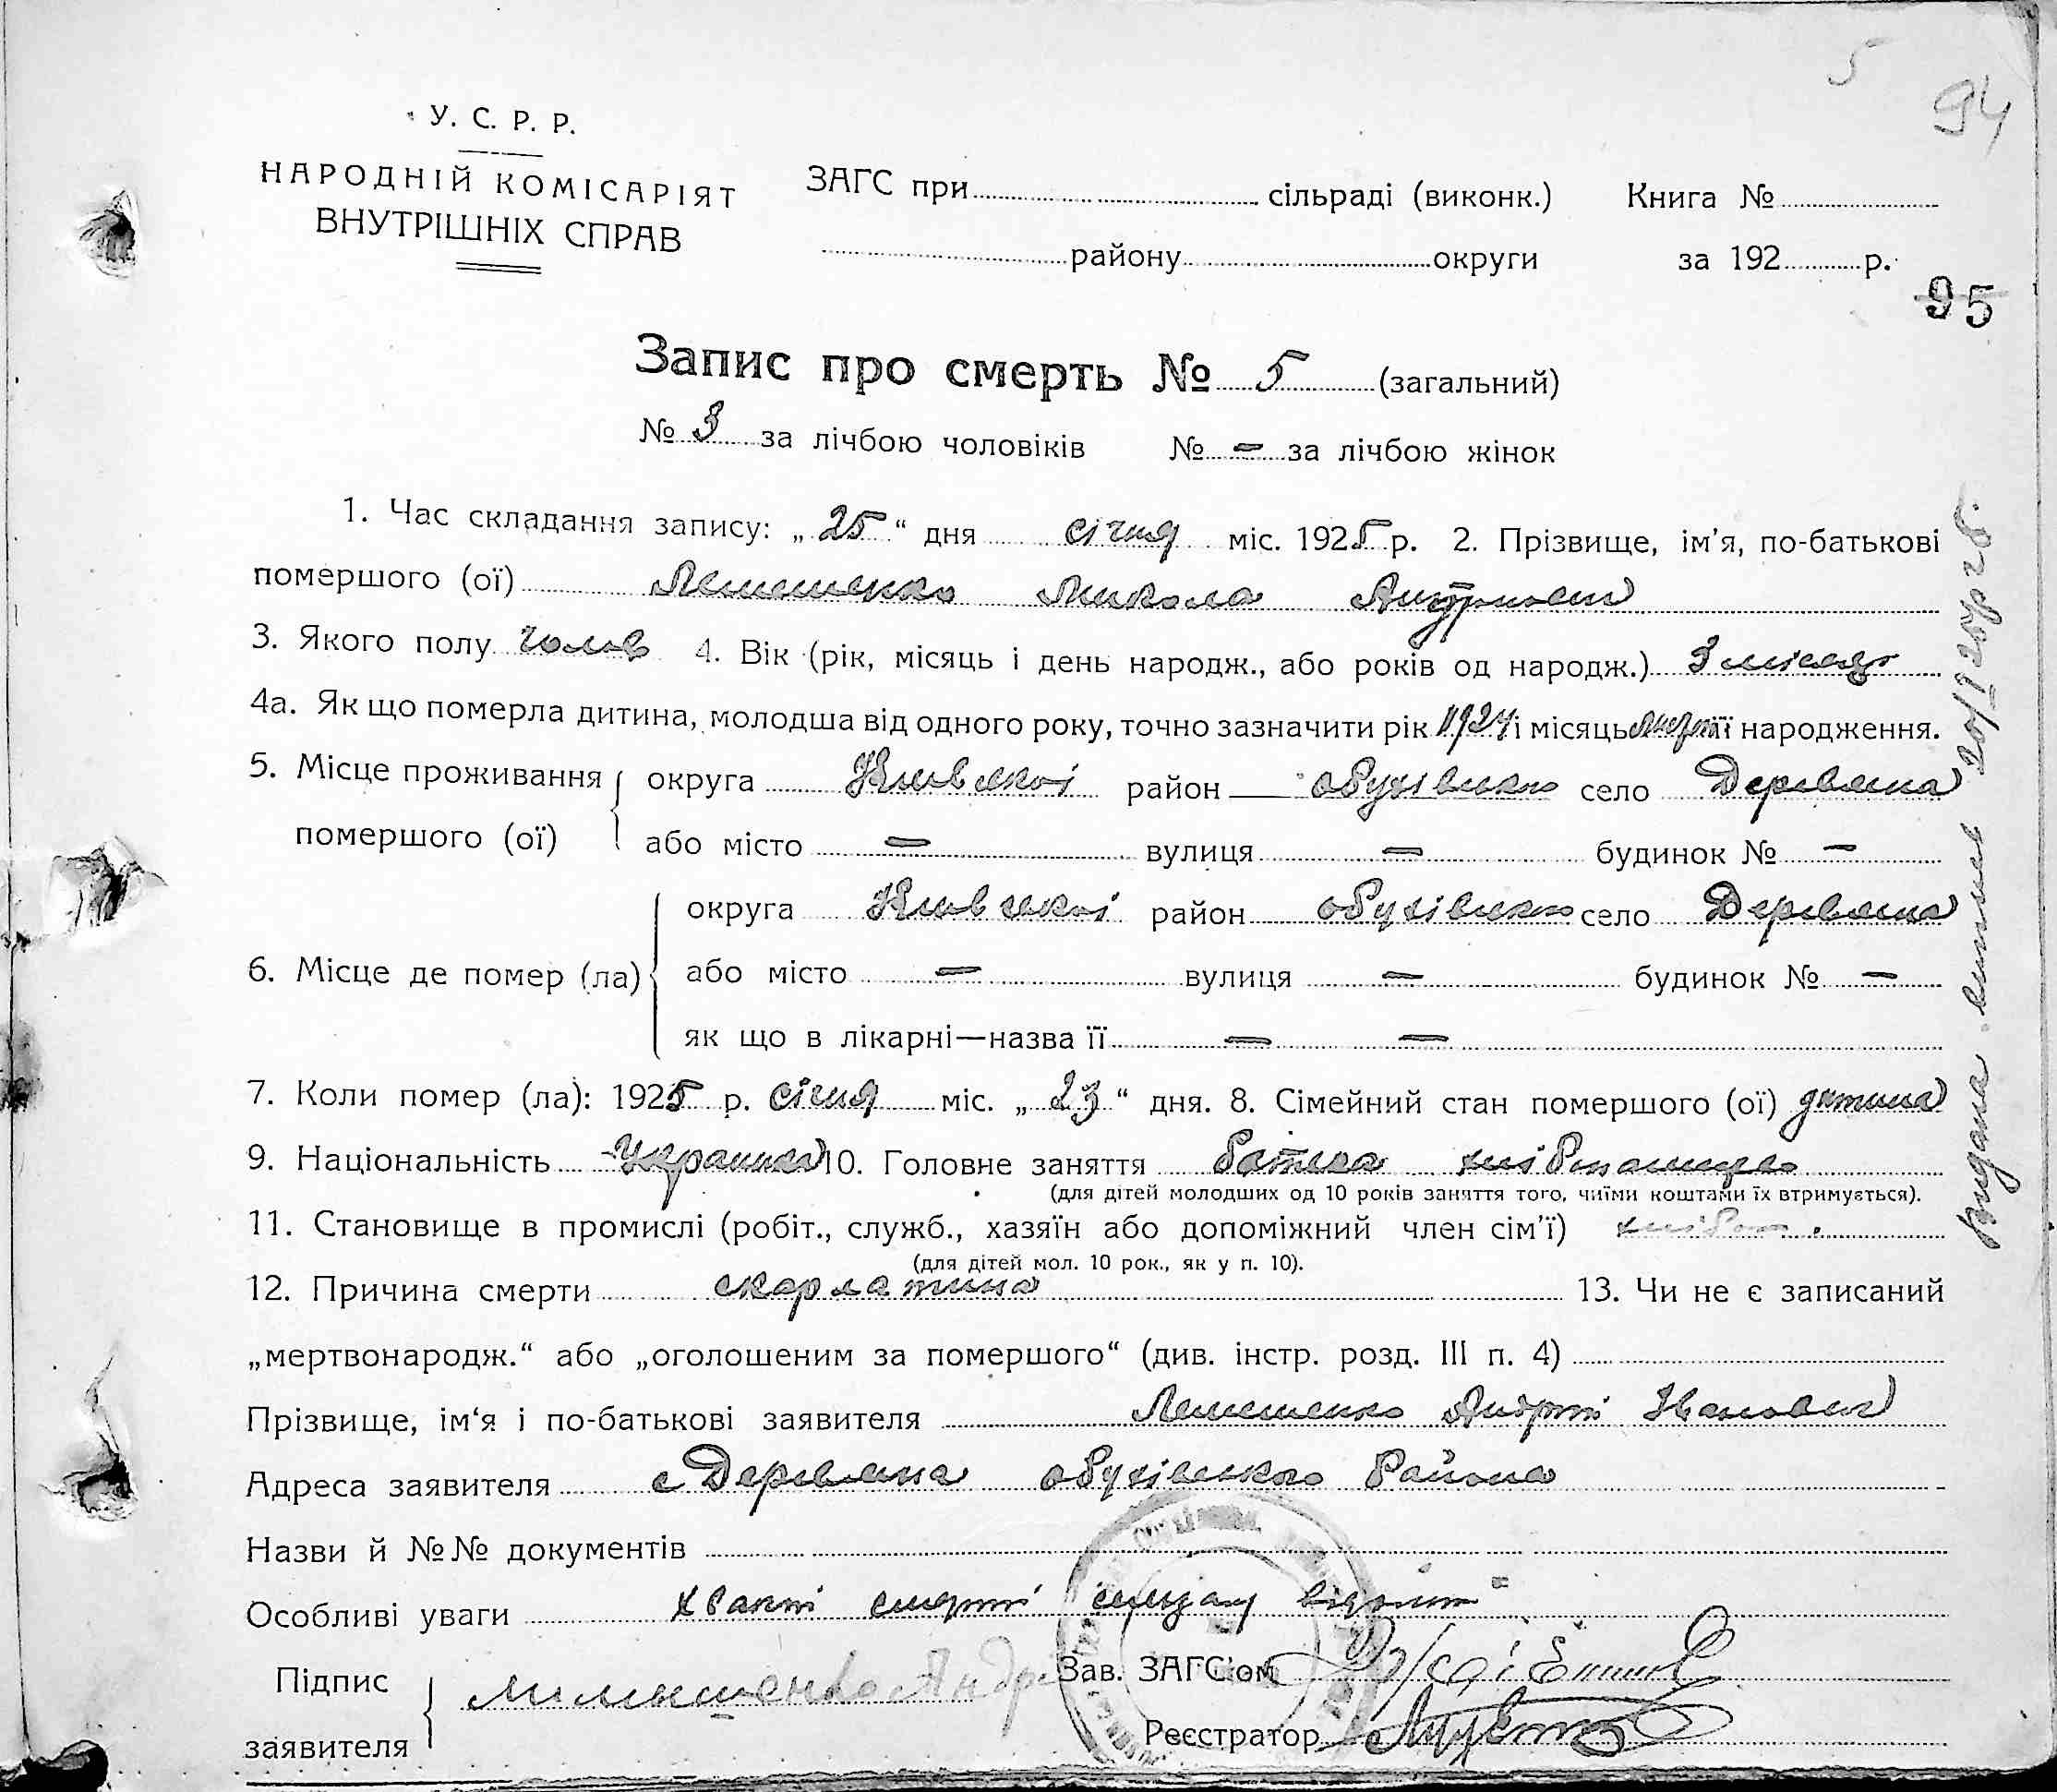 5
94
У. С. Р. Р.
НАРОДНІЙ КОМІСАРІЯТ
ВНУТРІШНІХ СПРАВ
ЗАГС при сільраді (виконк.) Книга №
району округи за 192 р.
95
Запис про смерть № 5 (загальний)
№ 3 за лічбою чоловіків № — за лічбою жінок
1. Час складання запису: „25“ дня січня міс. 1925 р. 2. Прізвище, ім'я, по-батькові
помершого (ої) Лемешенко Микола Андриевич
3. Якого полу чолов 4. Вік (рік, місяць і день народж., або років од народж.) 3 місяця
4а. Як що померла дитина, молодша від одного року, точно зазначити рік 1924 і місяць її народження.
5. Місце проживання округа Київської район обухівського село Деревяна
помершого (ої) або місто — вулиця — будинок № —
округа Київської район обухівського село Деревяна
6. Місце де помер (ла) або місто — вулиця — будинок № —
як що в лікарні—назва її — —
7. Коли помер (ла): 1925 р. січня міс. „23“ дня. 8. Сімейний стан помершого (ої) дитина
9. Національність Украинец 10. Головне заняття батька хліборобство
(для дітей молодших од 10 років заняття того, чиїми коштами їх втримується).
11. Становище в промислі (робіт., служб., хазяїн або допоміжний член сім'ї)
(для дітей мол. 10 рок., як у п. 10).
12. Причина смерти скарлатина 13. Чи не є записаний
„мертвонародж.“ або „оголошеним за помершого“ (див. інстр. розд. III п. 4)
Прізвище, ім'я і по-батькові заявителя Лемешенко Андрій Иванович
Адреса заявителя с Деревяна обухівського Района
Назви й №№ документів
Особливі уваги смерті
Підпис
заявителя Лемешенко Андр
Зав. ЗАГС'ом
Реєстратор
Видана